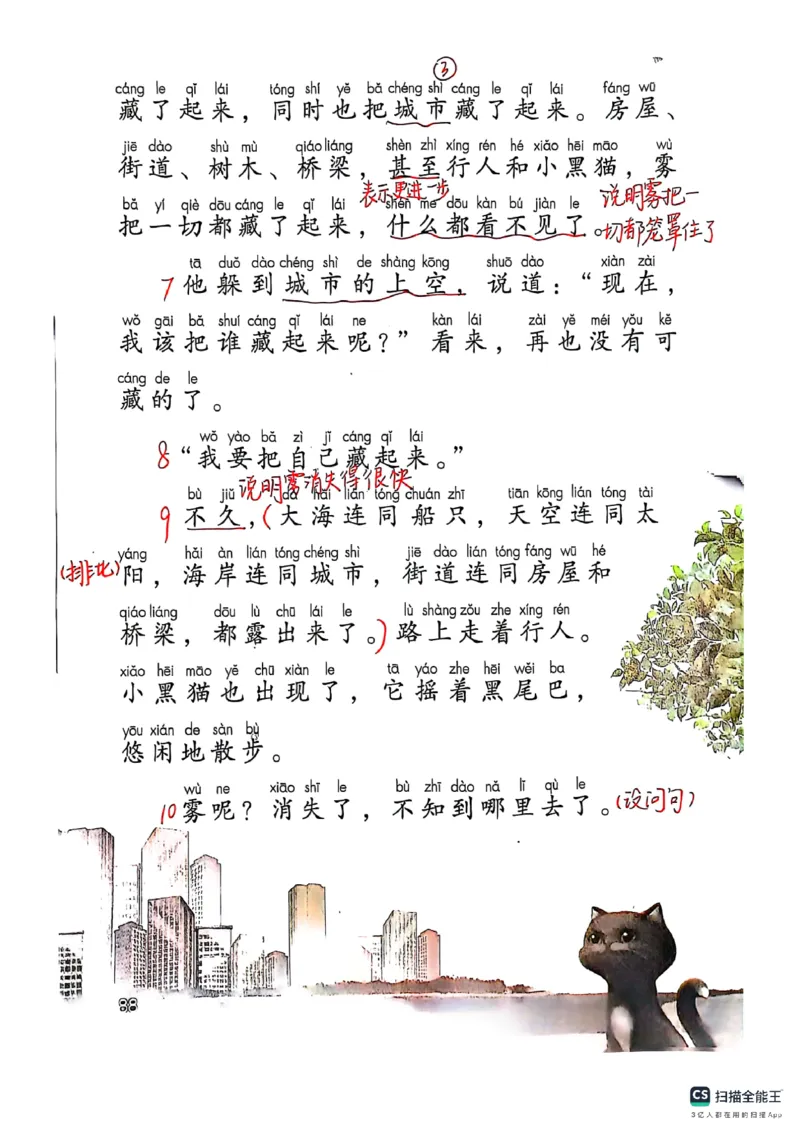 ③
cáng le qǐ lái tóng shí yě bǎ chéng shì cáng le qǐ lái fáng wū
藏了起来，同时也把城市藏了起来。房屋、
jiē dào shù mù qiáo liáng shèn zhì xíng rén hé xiǎo hēi māo wù
街道、树木、桥梁，甚至行人和小黑猫，雾
表示更进一步
说明雾把一
bǎ yí qiè dōu cáng le qǐ lái shén me dōu kàn bú jiàn le
把一切都藏了起来，什么都看不见了。
切都笼罩住了
tā duǒ dào chéng shì de shàng kōng shuō dào xiàn zài
7 他躲到城市的上空，说道：“现在，
wǒ gāi bǎ shuí cáng qǐ lái ne kàn lái zài yě méi yǒu kě
我该把谁藏起来呢？”看来，再也没有可
cáng de le
藏的了。
wǒ yào bǎ zì jǐ cáng qǐ lái
8 “我要把自己藏起来。”
说明雾消失得很快
bù jiǔ dà hǎi lián tóng chuán zhī tiān kōng lián tóng tài
9 不久，（大海连同船只，天空连同太
yáng hǎi àn lián tóng chéng shì jiē dào lián tóng fáng wū hé
（排比）阳，海岸连同城市，街道连同房屋和
qiáo liáng dōu lù chū lái le lù shàng zǒu zhe xíng rén
桥梁，都露出来了。）路上走着行人。
xiǎo hēi māo yě chū xiàn le tā yáo zhe hēi wěi ba
小黑猫也出现了，它摇着黑尾巴，
yōu xián de sàn bù
悠闲地散步。
wù ne xiāo shī le bù zhī dào nǎ lǐ qù le
10 雾呢？消失了，不知到哪里去了。（设问句）
98
CS 扫描全能王
3亿人都在用的扫描App